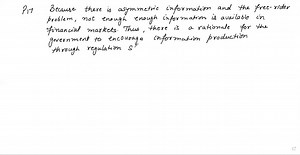 Because there is asymmetric information and the free-rider
problem, not enough enough information is available in
financial markets. Thus, there is a rationale for the
government to encourage information production
through regulation